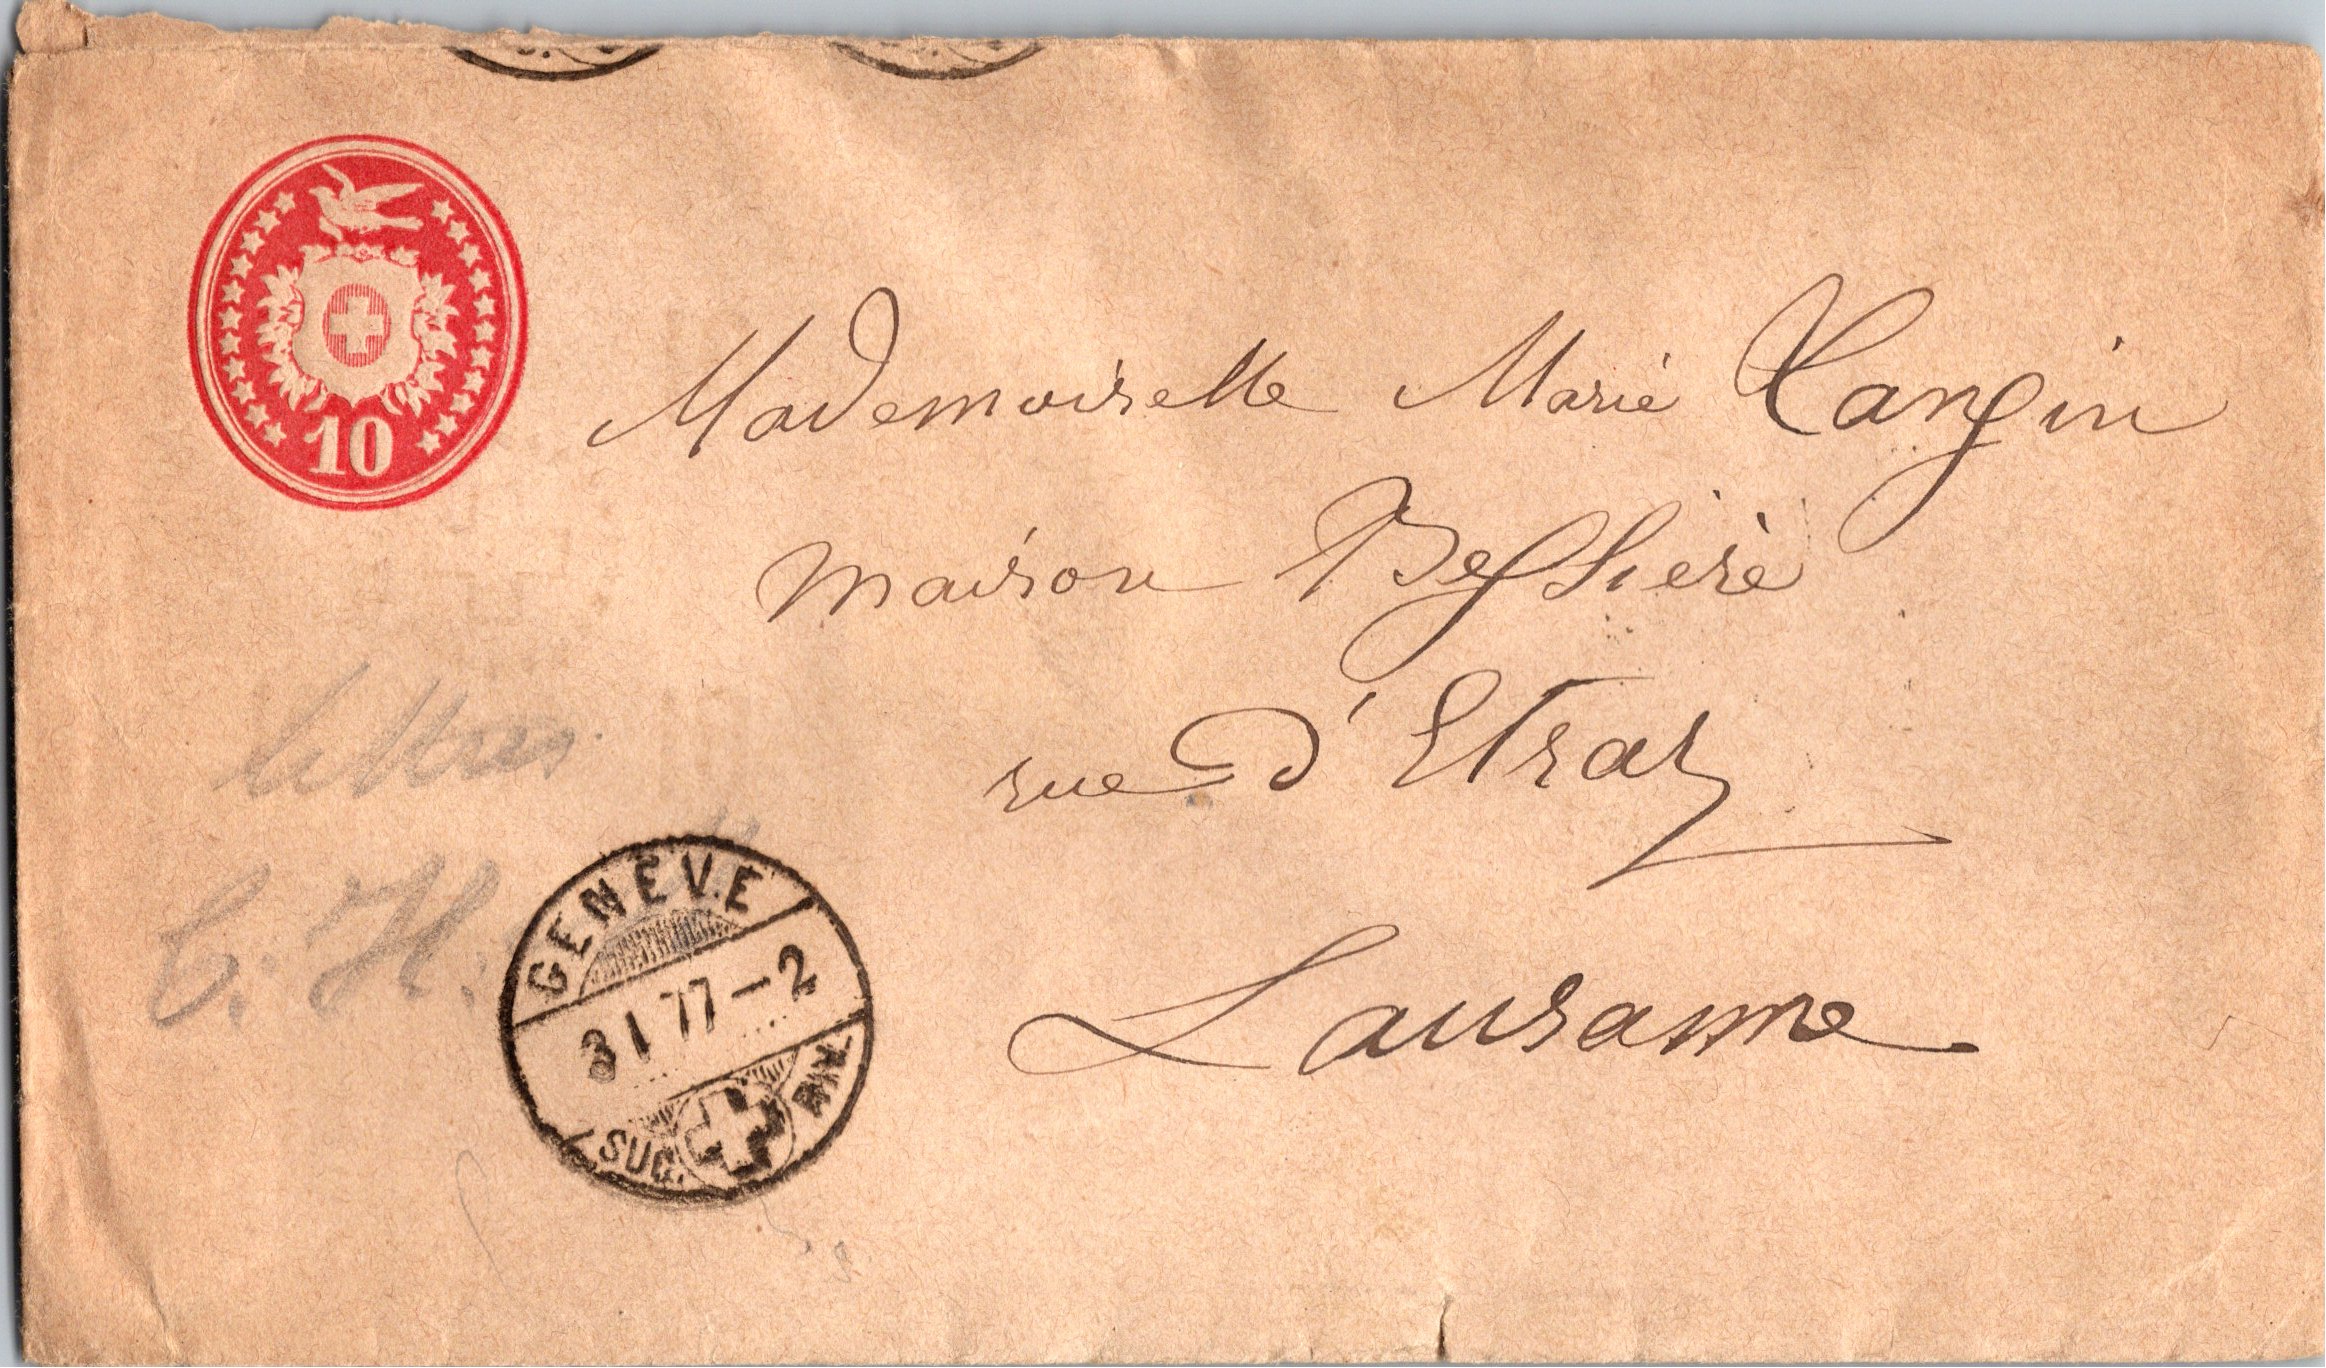 10
Mademoiselle Marie Tangin
maison Bessière
rue d'Etraz
Lausanne
lettres
C. H.
GENÈVE
3 I 77-2
SUC. RIV.